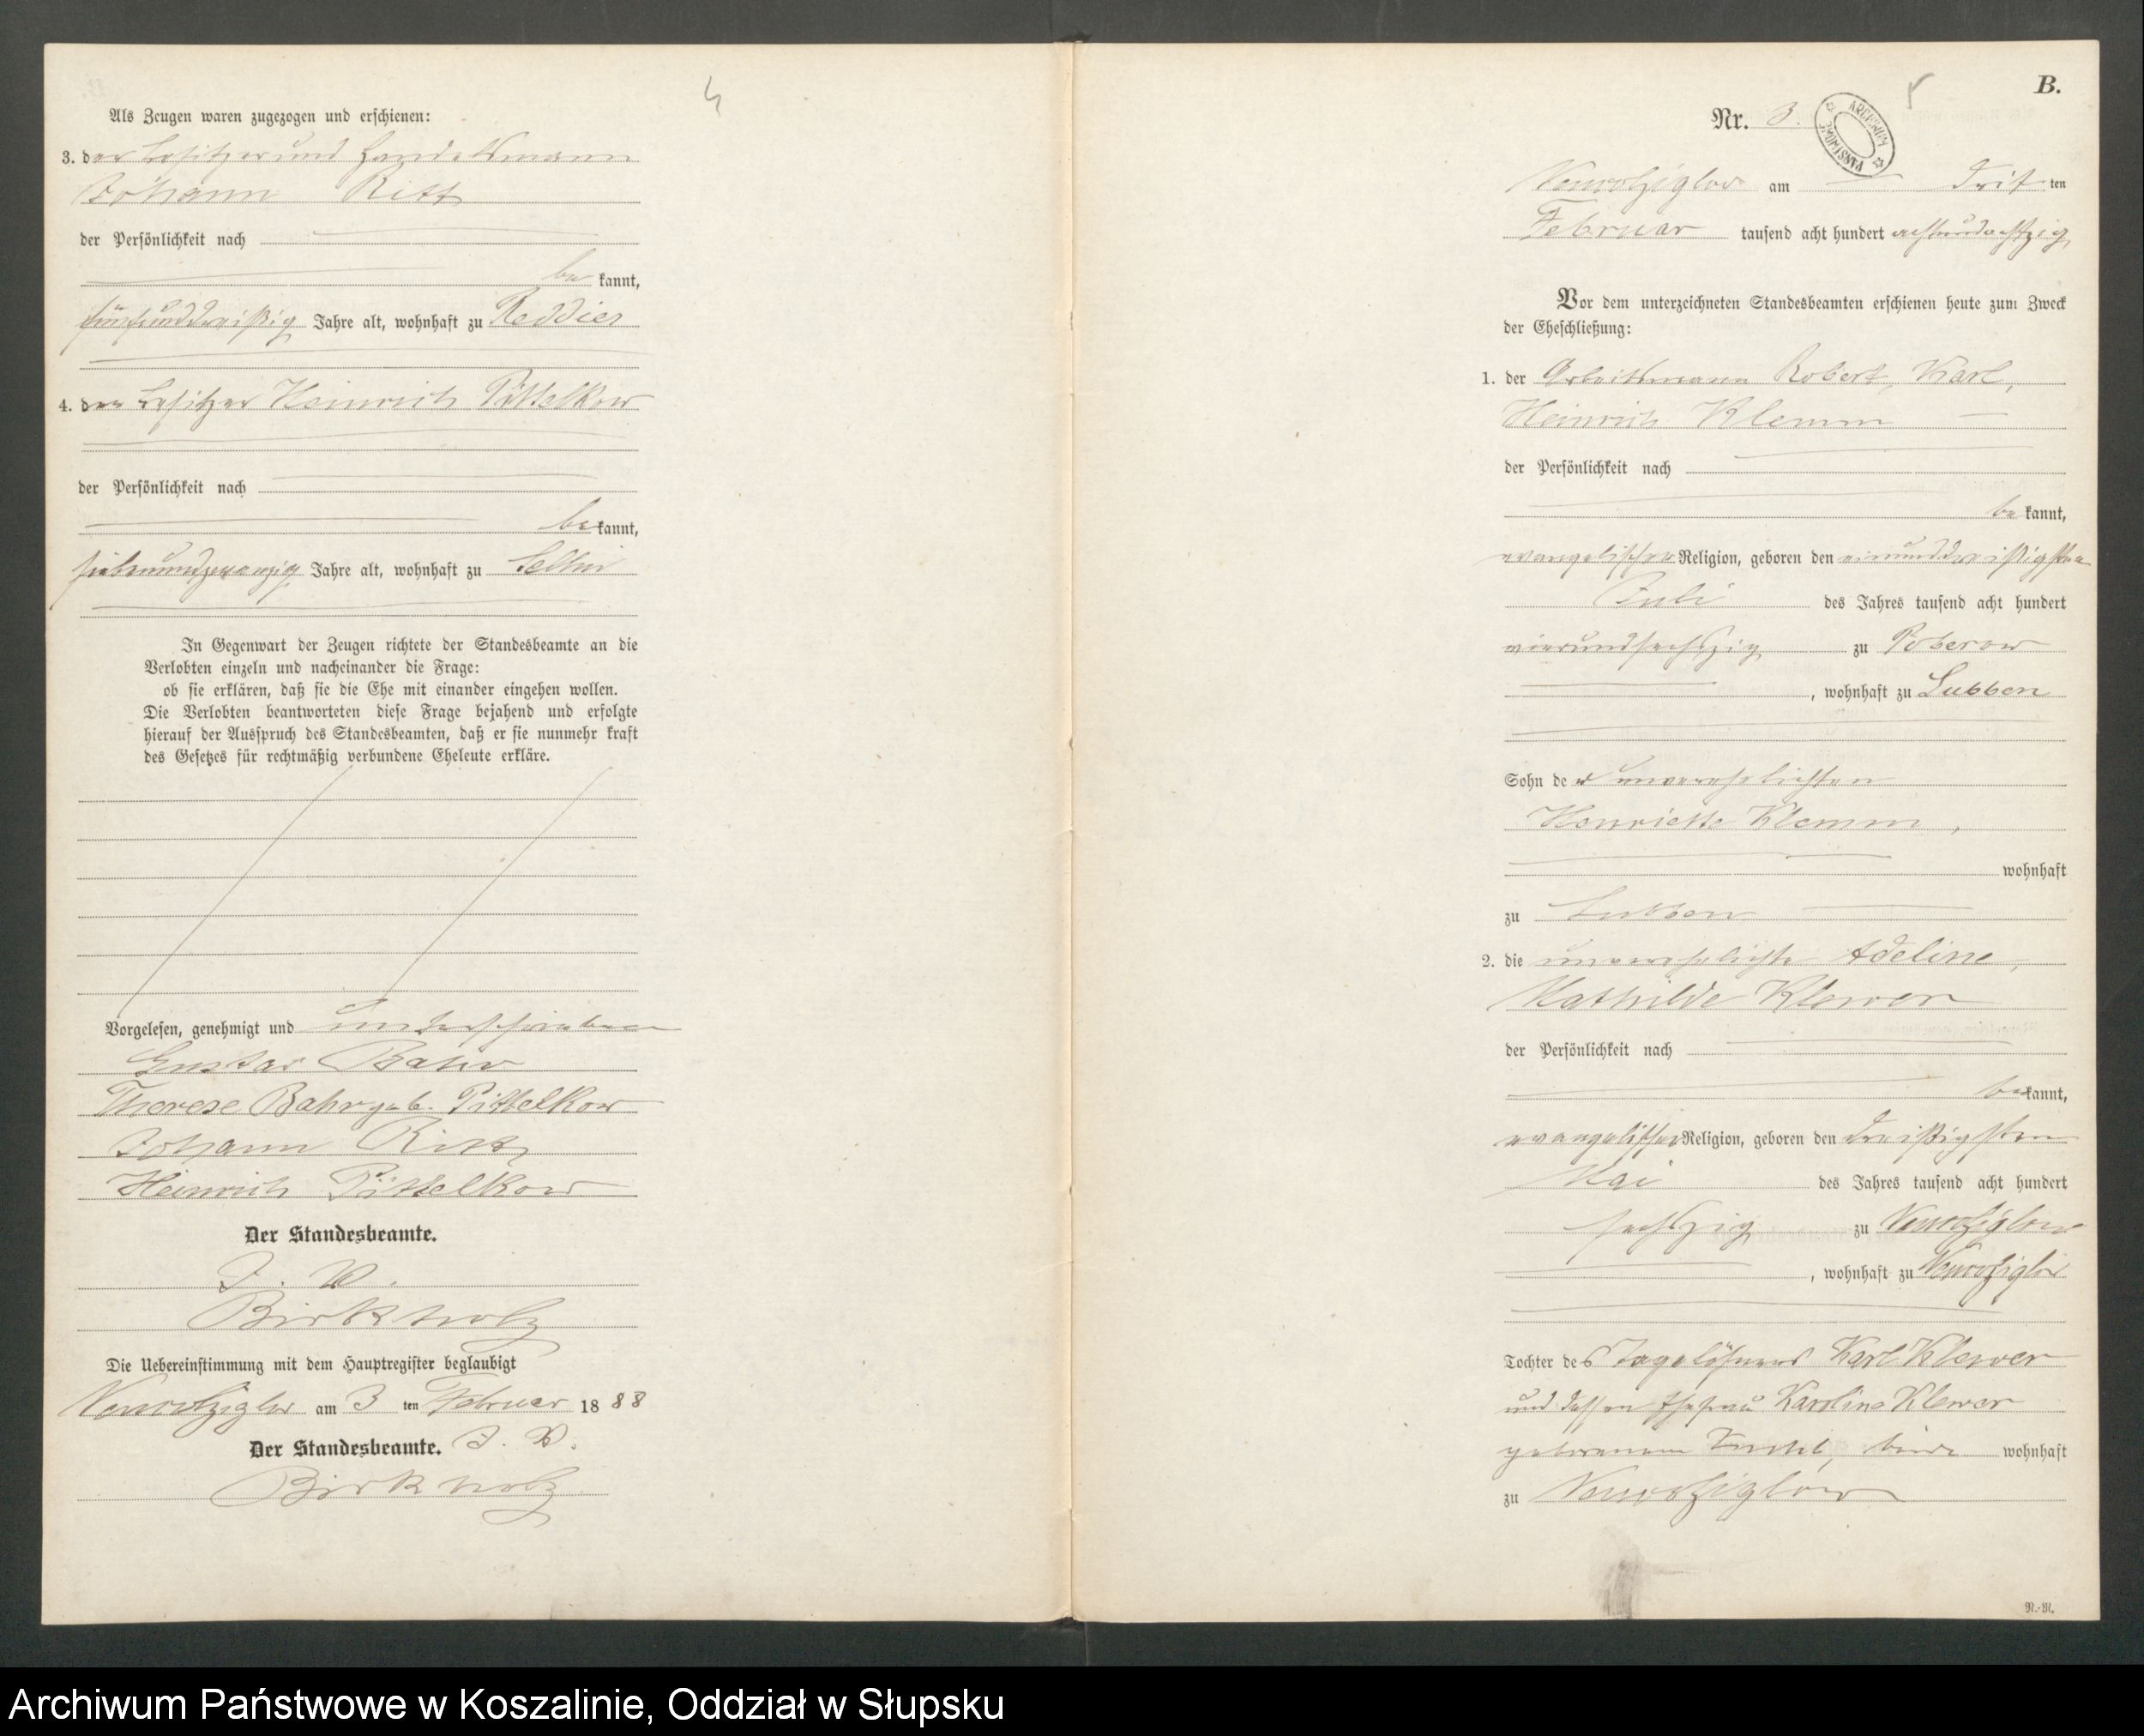 4
Als Zeugen waren zugezogen und erschienen:
3. der Besitzer und Handelsmann
Johann Ritt
der Persönlichkeit nach
be kannt,
fünfunddreißig Jahre alt, wohnhaft zu Reddies
4. der Besitzer Heinrich Pittelkow
der Persönlichkeit nach
be kannt,
siebenundzwanzig Jahre alt, wohnhaft zu Sellin
In Gegenwart der Zeugen richtete der Standesbeamte an die
Verlobten einzeln und nacheinander die Frage:
ob sie erklären, daß sie die Ehe mit einander eingehen wollen.
Die Verlobten beantworteten diese Frage bejahend und erfolgte
hierauf der Ausspruch des Standesbeamten, daß er sie nunmehr kraft
des Gesetzes für rechtmäßig verbundene Eheleute erkläre.
Vorgelesen, genehmigt und unterschrieben
Gustav Bahr
Therese Bahr geb. Pittelkow
Johann Ritt
Heinrich Pittelkow
Der Standesbeamte.
J. V.
Birkholz
Die Uebereinstimmung mit dem Hauptregister beglaubigt
Neuwolziglow am 3 ten Februar 1888
Der Standesbeamte. J. V.
Birkholz
B.
5
Nr. 3.
ARCHIWUM PAŃSTWOWE
Neuwolziglow am drit ten
Februar tausend acht hundert achtundachtzig
Vor dem unterzeichneten Standesbeamten erschienen heute zum Zweck
der Eheschließung:
1. der Arbeitsmann Robert, Karl,
Heinrich Klemm
der Persönlichkeit nach
be kannt,
evangelischer Religion, geboren den einunddreißigsten
Juli des Jahres tausend acht hundert
vierundsechszig zu Poberow
, wohnhaft zu Lubben
Sohn der unverehelichten
Henriette Klemm,
wohnhaft
zu Lubben
2. die unverehelichte Adeline,
Mathilde Klewer
der Persönlichkeit nach
be kannt,
evangelischer Religion, geboren den dreißigsten
Mai des Jahres tausend acht hundert
sechszig zu Neuwolziglow
, wohnhaft zu Neuwolziglow
Tochter des Tagelöhners Karl Klewer
und dessen Ehefrau Karoline Klewer
geborenen beide wohnhaft
zu Neuwolziglow
N.-N.
Archiwum Państwowe w Koszalinie, Oddział w Słupsku